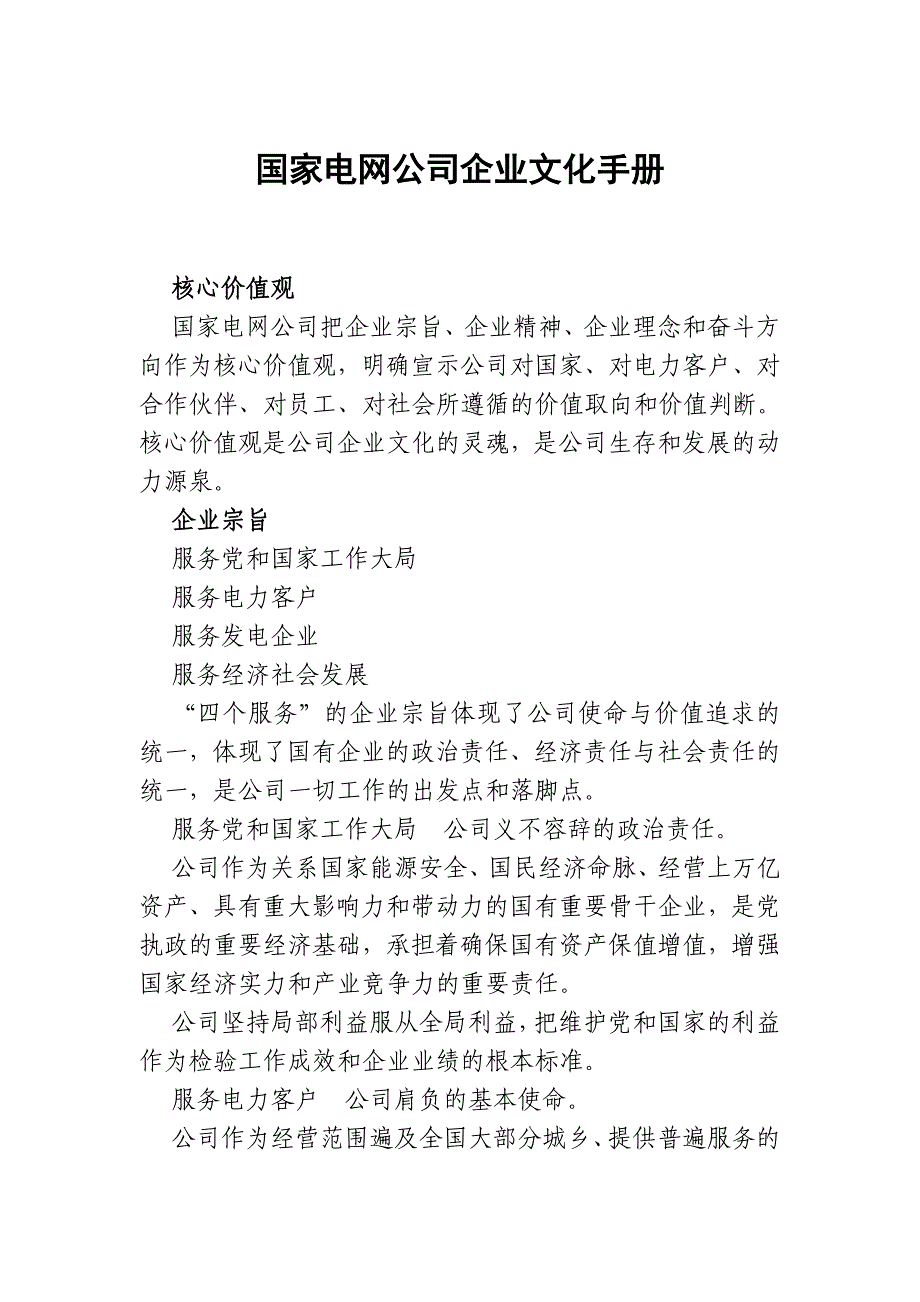 国家电网公司企业文化手册
核心价值观
国家电网公司把企业宗旨、企业精神、企业理念和奋斗方
向作为核心价值观，明确宣示公司对国家、对电力客户、对
合作伙伴、对员工、对社会所遵循的价值取向和价值判断。
核心价值观是公司企业文化的灵魂，是公司生存和发展的动
力源泉。
企业宗旨
服务党和国家工作大局
服务电力客户
服务发电企业
服务经济社会发展
“四个服务”的企业宗旨体现了公司使命与价值追求的
统一，体现了国有企业的政治责任、经济责任与社会责任的
统一，是公司一切工作的出发点和落脚点。
服务党和国家工作大局　公司义不容辞的政治责任。
公司作为关系国家能源安全、国民经济命脉、经营上万亿
资产、具有重大影响力和带动力的国有重要骨干企业，是党
执政的重要经济基础，承担着确保国有资产保值增值，增强
国家经济实力和产业竞争力的重要责任。
公司坚持局部利益服从全局利益，把维护党和国家的利益
作为检验工作成效和企业业绩的根本标准。
服务电力客户　公司肩负的基本使命。
公司作为经营范围遍及全国大部分城乡、提供普遍服务的